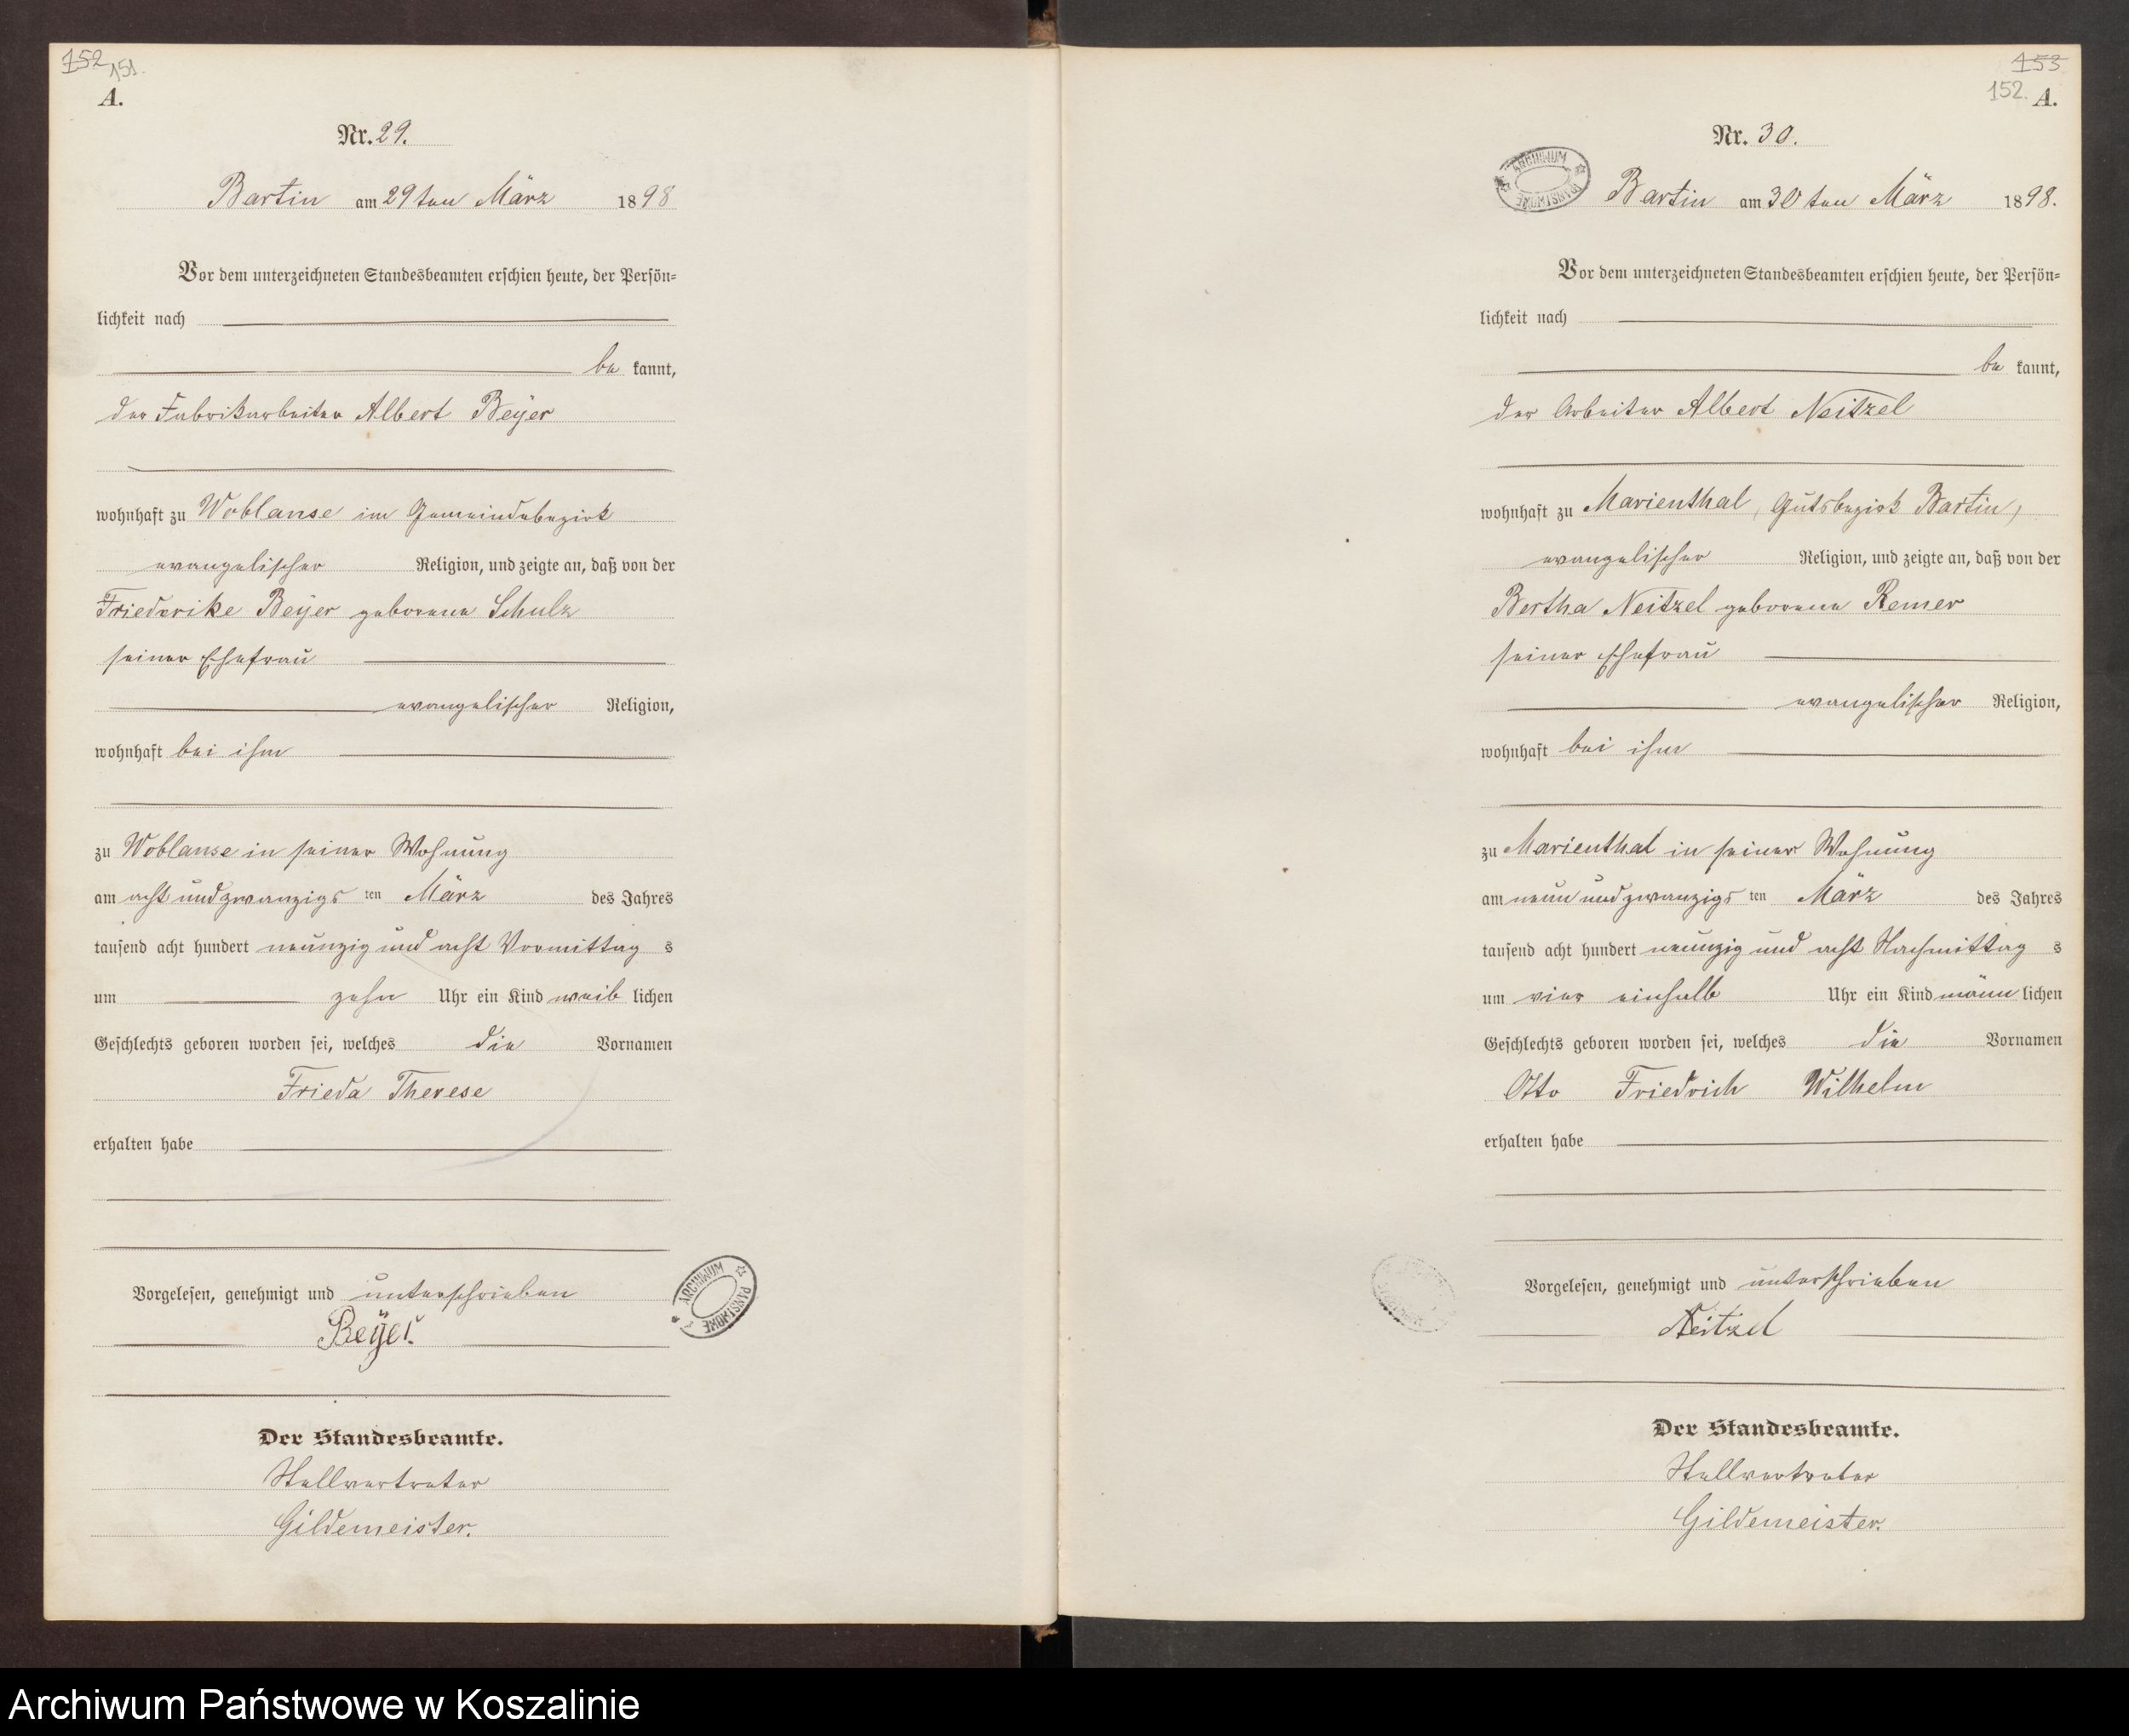 152
151.
A.
Nr. 29.
Bartin am 29ten März 1898
Vor dem unterzeichneten Standesbeamten erschien heute, der Persön-
lichkeit nach
be kannt,
der Fabrikarbeiter Albert Beyer
wohnhaft zu Woblanse im Gemeindebezirk
evangelischer Religion, und zeigte an, daß von der
Friederike Beyer geborene Schulz
seiner Ehefrau
evangelischer Religion,
wohnhaft bei ihm
zu Woblanse in seiner Wohnung
am acht und zwanzigs ten März des Jahres
tausend acht hundert neunzig und acht Vormittag s
um zehn Uhr ein Kind weib lichen
Geschlechts geboren worden sei, welches die Vornamen
Frieda Therese
erhalten habe
Vorgelesen, genehmigt und unterschrieben
Beÿer.
ARCHIWUM PAŃSTWOWE
Der Standesbeamte.
Stellvertreter
Gildemeister.
153
152. A.
Nr. 30.
ARCHIWUM PAŃSTWOWE
Bartin am 30ten März 1898.
Vor dem unterzeichneten Standesbeamten erschien heute, der Persön-
lichkeit nach
be kannt,
der Arbeiter Albert Neitzel
wohnhaft zu Marienthal, Gutsbezirk Bartin,
evangelischer Religion, und zeigte an, daß von der
Bertha Neitzel geborene Remer
seiner Ehefrau
evangelischer Religion,
wohnhaft bei ihm
zu Marienthal in seiner Wohnung
am neun und zwanzigs ten März des Jahres
tausend acht hundert neunzig und acht Nachmittag s
um vier einhalb Uhr ein Kind männ lichen
Geschlechts geboren worden sei, welches die Vornamen
Otto Friedrich Wilhelm
erhalten habe
Vorgelesen, genehmigt und unterschrieben
Neitzel
Der Standesbeamte.
Stellvertreter
Gildemeister.
Archiwum Państwowe w Koszalinie